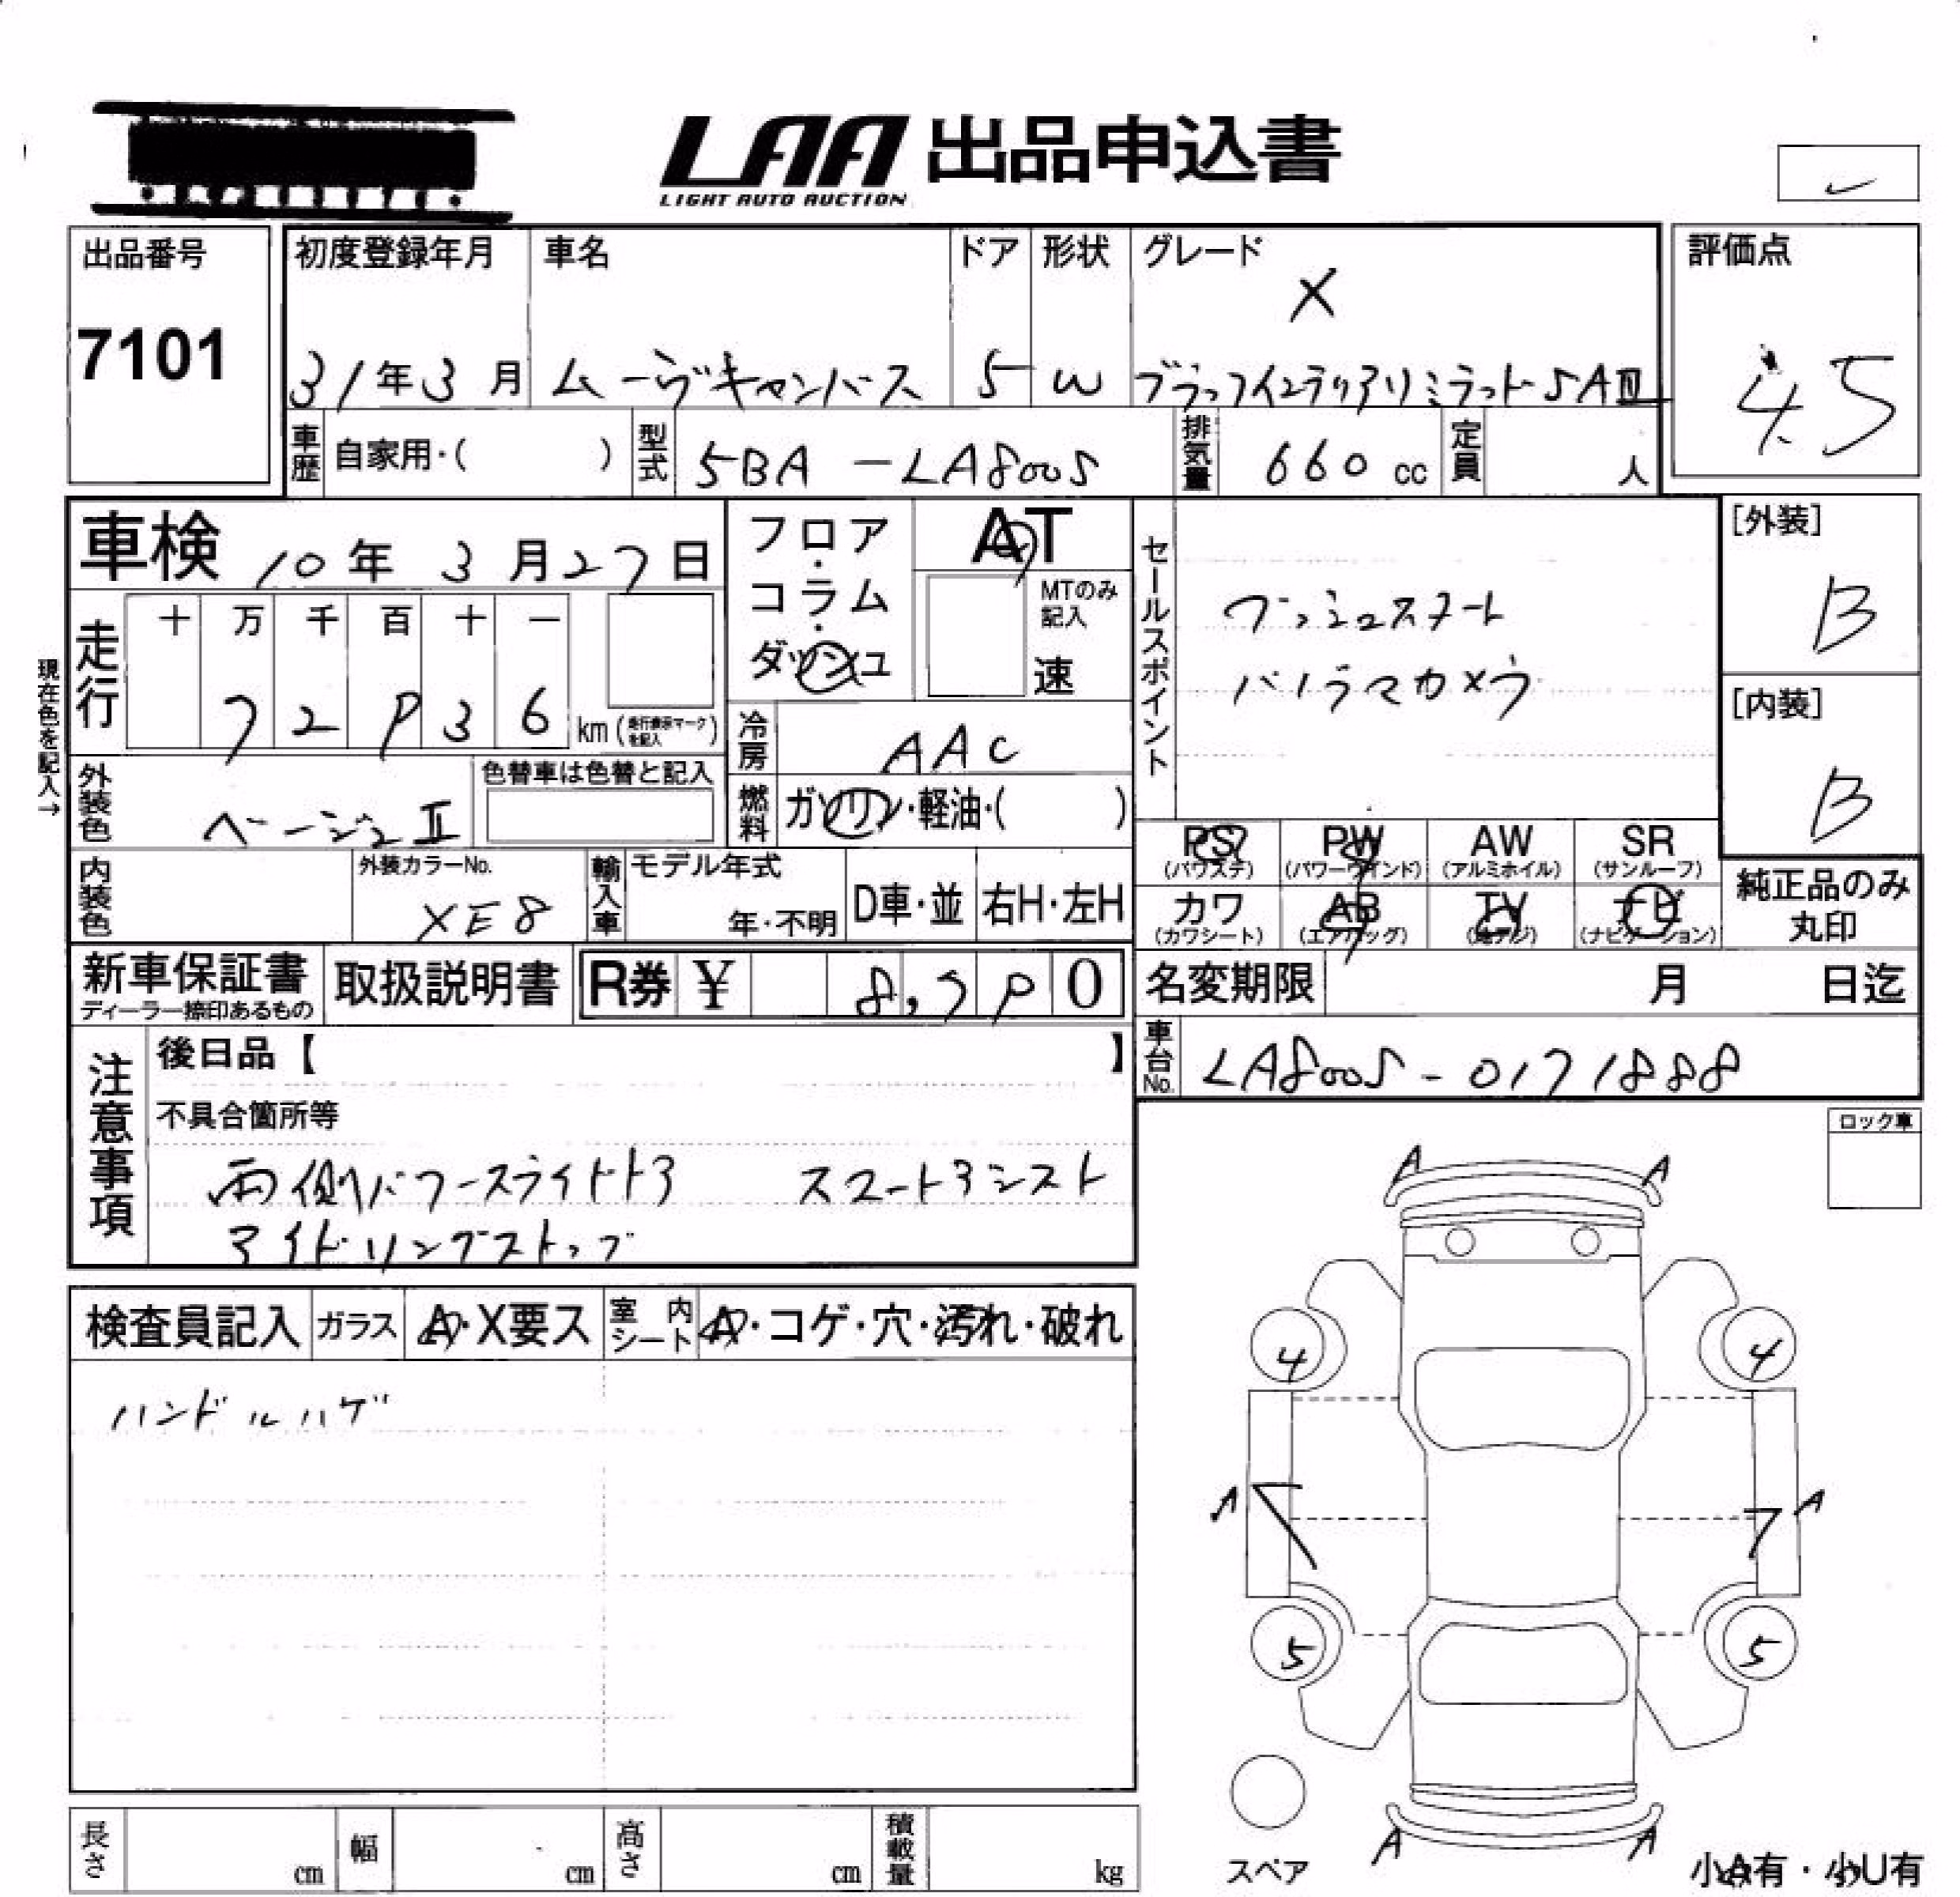 LAA 出品申込書
LIGHT AUTO AUCTION
出品番号
7101
初度登録年月
31年3月
車名
ムーヴキャンバス
ドア
5
形状
W
グレード
X
ブラックインテリアリミテッド SAⅢ
評価点
4.5
車歴 自家用・( )
型式 5BA-LA800S
排気量 660 cc
定員 人
車検 10年3月27日
フロア・コラム・ダッシュ
AT
MTのみ記入
速
セールスポイント
プッシュスタート
パノラマカメラ
[外装]
B
[内装]
B
現在色を記入→
走行 十 万 千 百 十 一
72936 km (走行表示マークを記入)
冷房 AAC
外装色 ベージュⅡ
色替車は色替と記入
燃料 ガソリン・軽油・( )
内装色
外装カラーNo.
XE8
輸入車 モデル年式
年・不明
D車・並
右H・左H
PS (パワステ)
PW (パワーウインド)
AW (アルミホイル)
SR (サンルーフ)
カワ (カワシート)
AB (エアバッグ)
TV (地デジ)
ナビ (ナビゲーション)
純正品のみ丸印
新車保証書
ディーラー捺印あるもの
取扱説明書
R券 ¥ 8,790
名変期限 月 日迄
車台No. LA800S-0171888
注意事項
後日品【 】
不具合箇所等
両側パワースライドドア スマートアシスト
アイドリングストップ
ロック車
検査員記入
ガラス A・X要ス
室内シート A・コゲ・穴・汚れ・破れ
ハンドルハゲ
A A
4 4
A A
5 5
A A
スペア
小A有・小U有
長さ cm
幅 cm
高さ cm
積載量 kg